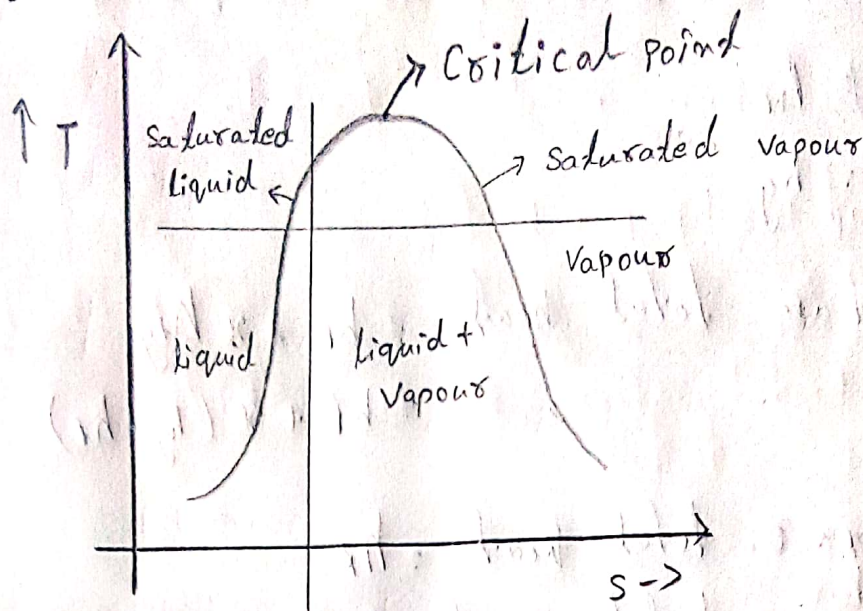 Critical point
↑ T
Saturated
liquid
Saturated vapour
Vapour
liquid
liquid +
Vapour
S →